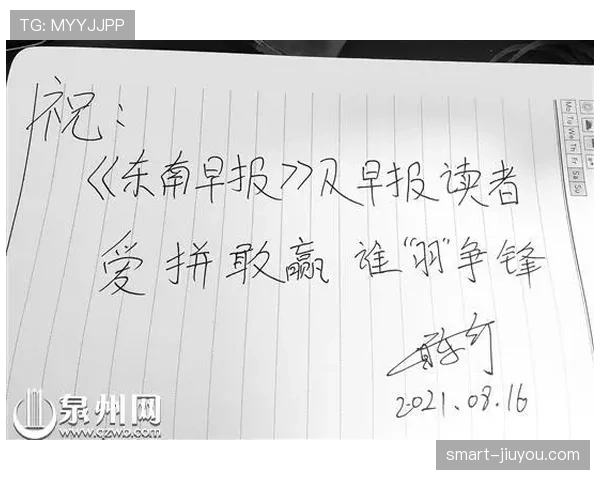 TG: MYYJJPP
祝：
《东南早报》及早报读者
爱拼敢赢 谁“羽”争锋
2021.08.16
Mo Tu We Th Fr Sa Su
泉州网
www.qzwb.com
smart-jiuyou.com